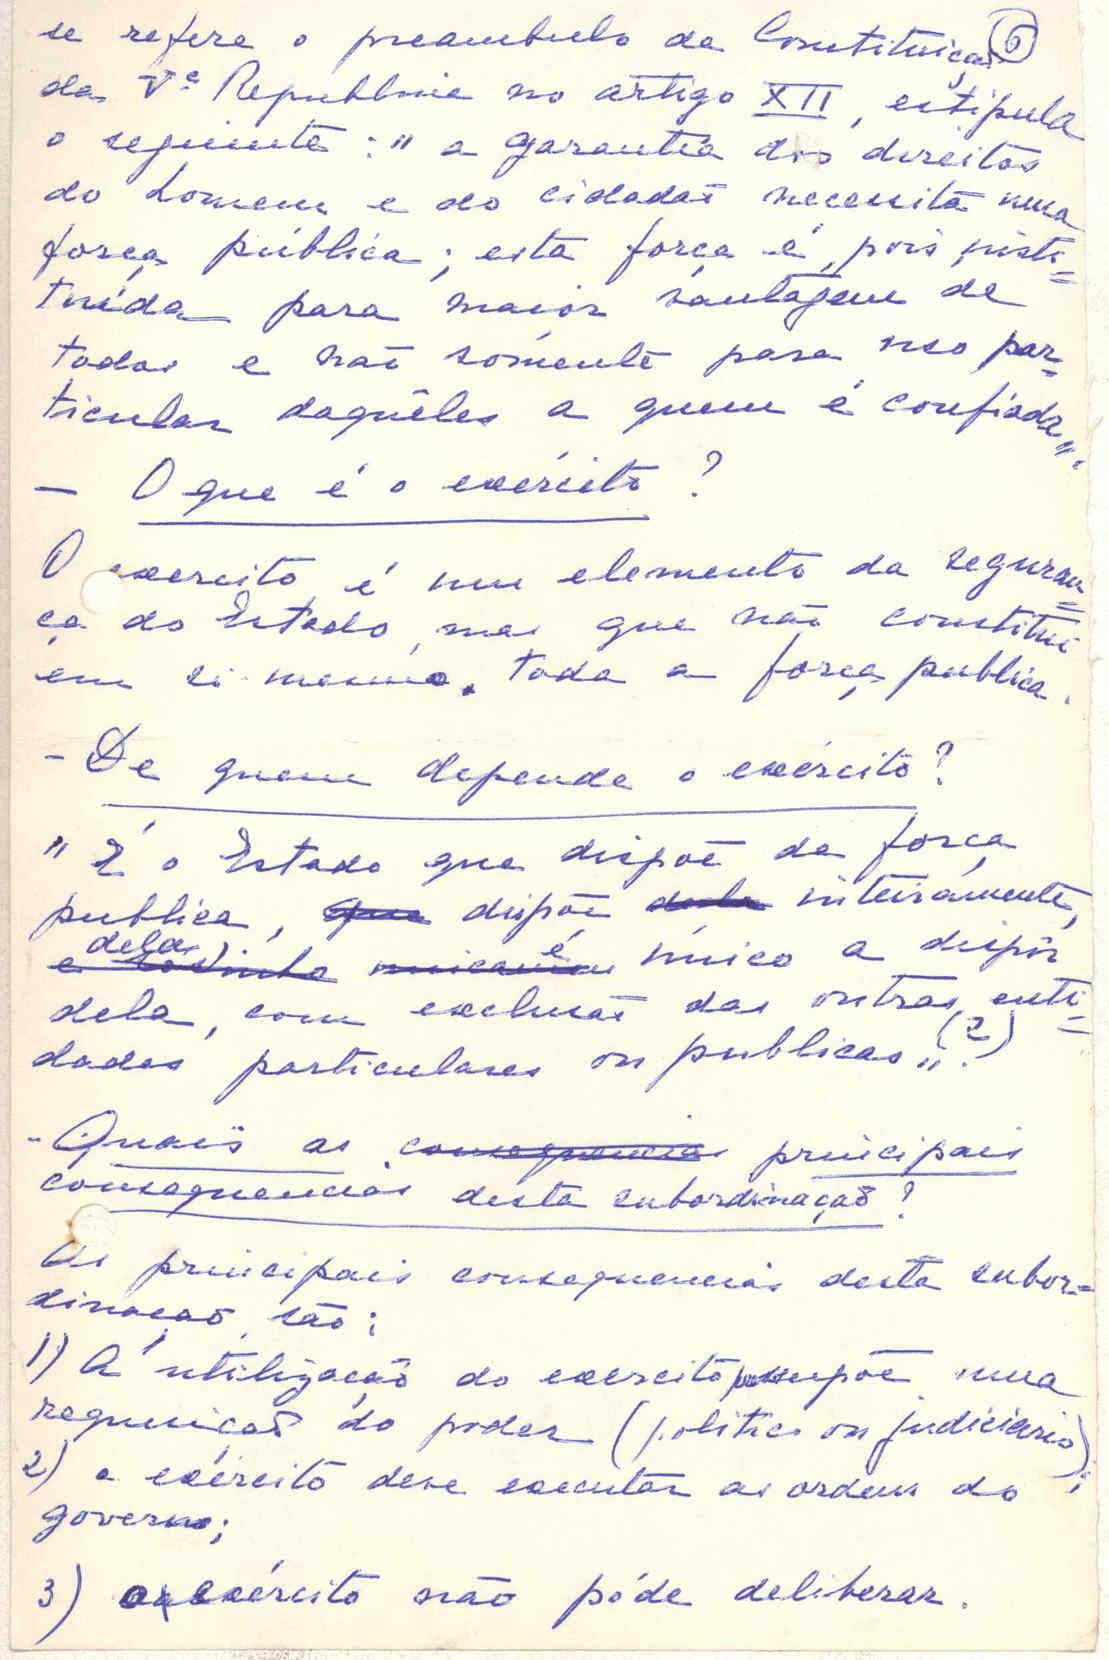 se refere o preambulo da Constituição 6
da Vª Republica no artigo XII, estipula
o seguinte: "a garantia dos direitos
do homem e do cidadão necessita uma
força pública; esta força é, pois, insti=
tuída para maior vantagem de
todos e não sómente para uso par=
ticular daquêles a quem é confiada".
— O que é o exército?
O exercito é um elemento da seguran=
ça do Estado, mas que não constitui
em si mesmo, toda a força publica.
- De quem depende o exército?
" É o Estado que dispõe da força
publica, que dispõe dela inteiramente,
dela
e sòzinho unicamente é único a dispôr
dela, com exclusão das outras enti=
dades particulares ou publicas". (2)
- Quais as consequencias principais
consequencias desta subordinação?
As principais consequencias desta subor=
dinação, são:
1) A utilização do exercito supõe uma
requisição do poder (politico ou judiciario);
2) o exército deve executar as ordens do
governo;
3) o exército não póde deliberar.